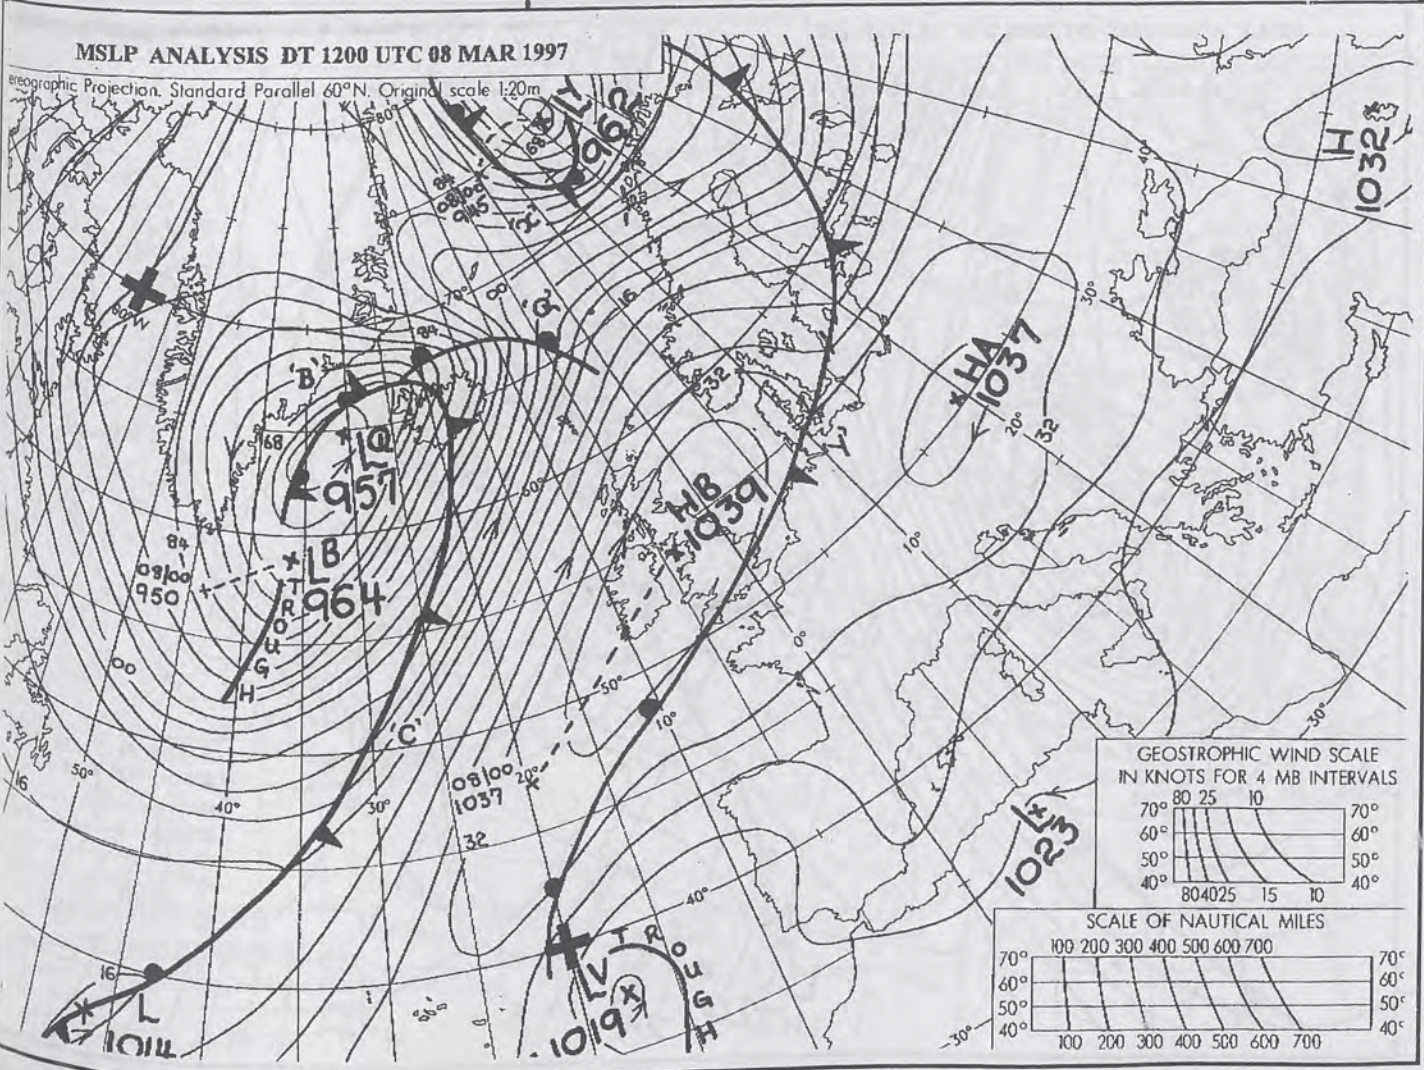 MSLP ANALYSIS DT 1200 UTC 08 MAR 1997
ereographic Projection. Standard Parallel 60°N. Original scale 1:20m
80°
68
LY
962
84
08/00
945
'X'
H
1032
40°
60°W
70°
00
'Q'
16
30°
84
'B'
HA
1037
32
20°
32
68
LQ
957
60°
HB
1039
10°
84
08/00
950
LB
964
TROUGH
00
0°
50°
10°
'C'
08/00
1037
20°
30°
16
50°
40°
30°
32
LX
1023
40°
16
L
1014
LV
1019
TROUGH
30°
GEOSTROPHIC WIND SCALE
IN KNOTS FOR 4 MB INTERVALS
80 25 10
70° 70°
60° 60°
50° 50°
40° 40°
80 40 25 15 10
SCALE OF NAUTICAL MILES
100 200 300 400 500 600 700
70° 70°
60° 60°
50° 50°
40° 40°
100 200 300 400 500 600 700